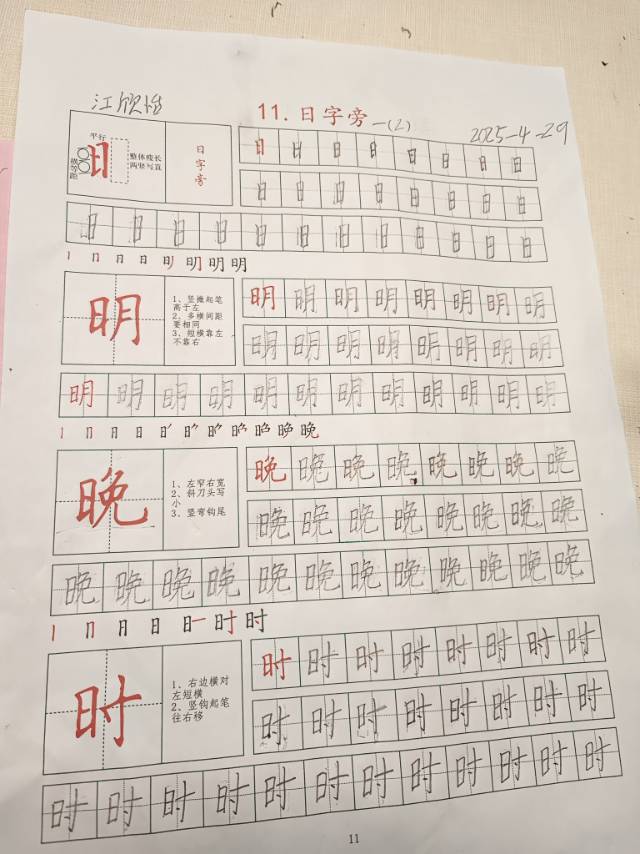 江欣怡
11.日字旁一(2)
2025-4-29
平行
横等距
日
整体瘦长
两竖写直
日字旁
日 日 日 日 日 日 日 日
日 日 日 日 日 日 日 日
日 日 日 日 日 日 日 日 日 日 日
明
1、竖撇起笔
高于左
2、多横间距
要相同
3、短横靠左
不靠右
明 明 明 明 明 明 明 明
明 明 明 明 明 明 明 明
明 明 明 明 明 明 明 明 明 明 明
晚
1、左窄右宽
2、斜刀头写
小
3、竖弯钩尾
晚 晚 晚 晚 晚 晚 晚 晚
晚 晚 晚 晚 晚 晚 晚 晚
晚 晚 晚 晚 晚 晚 晚 晚 晚 晚 晚
时
1、右边横对
左短横
2、竖钩起笔
往右移
时 时 时 时 时 时 时 时
时 时 时 时 时 时 时 时
时 时 时 时 时 时 时 时 时 时 时
11